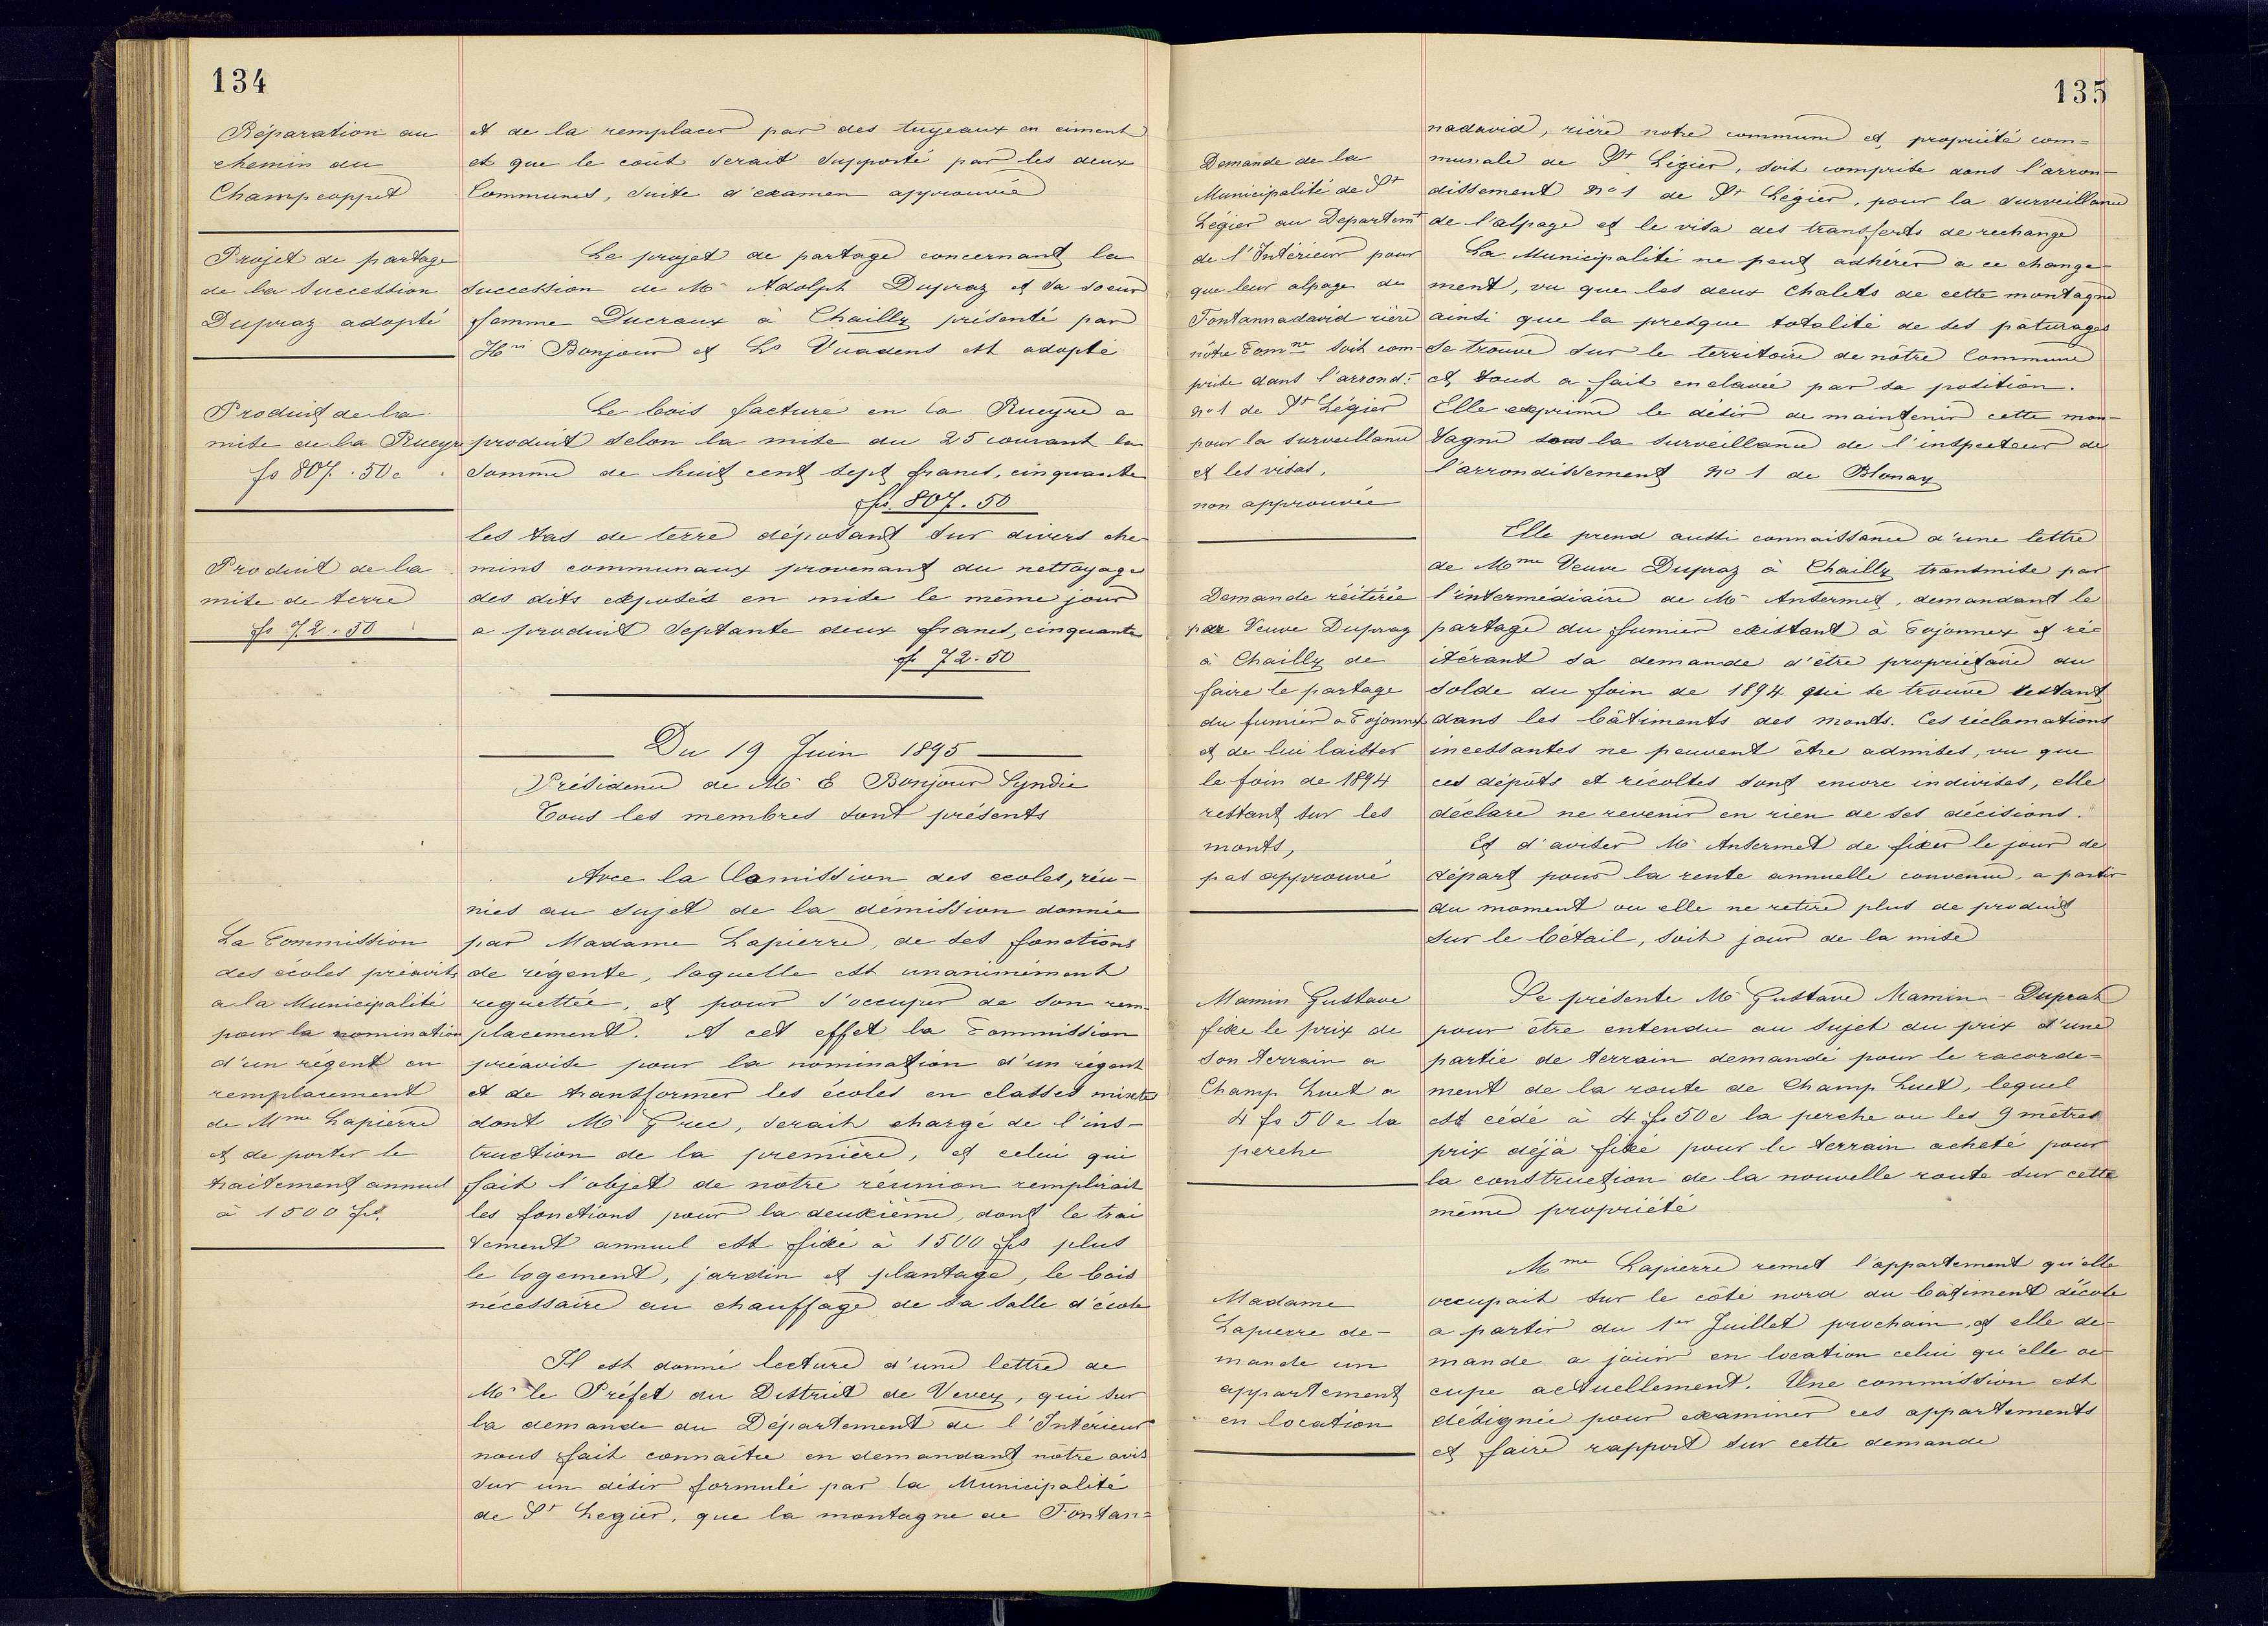 134
Réparation au
chemin du
Champ cuppet
et de la remplacer par des tuyeaux en ciment
et que le coût serait supporté par les deux
Communes, suite d'examen approuvée
Projet de partage
de la succession
Dupraz adopté
Le projet de partage concernant la
succession de Mr Adolph Dupraz et sa soeur
femme Ducraux à Chailly présenté par
Hri Bonjour et Ls Vuadens est adopté
Produit de la
mise de la Rueyre
fs 807.50c
Le bois facturé en la Rueyre a
produit selon la mise du 25 courant la
somme de huit cent sept francs, cinquante
frs. 807.50
Produit de la
mise de terre
fs 72.50
les tas de terre déposant sur divers che
mins communaux provenant du nettoyage
des dits exposés en mise le même jour
a produit septante deux francs, cinquante
fr 72.50
Du 19 Juin 1895
Présidence de Mr E Bonjour Syndic
Tous les membres sont présents
La Commission
des écoles préavise
a la Municipalité
pour la nomination
d'un régent en
remplacement
de Mme Lapierre
et de porter le
traitement annuel
à 1500 frs.
Avec la Comission des ecoles, réu-
nies au sujet de la démission donnée
par Madame Lapierre, de ses fonctions
de régente, laquelle est unanimément
regrettée, et pour s'occuper de son rem-
placement. A cet effet la Commission
préavise pour la nomination d'un régent
et de transformer les écoles en classes mixtes
dont Mr Grec, serait chargé de l'ins-
truction de la première, et celui qui
fait l'objet de nôtre réunion remplirait
les fonctions pour la deuxième, dont le trai
tement annuel est fixé à 1500 frs plus
le logement, jardin et plantage, le bois
nécessaire au chauffage de sa salle d'école
Il est donné lecture d'une lettre de
Mr le Préfet du District de Vevey, qui sur
la demande du Département de l'Intérieur
nous fait connaître en demandant nôtre avis
sur un désir formulé par la Municipalité
de St Legier, que la montagne de Fontan=
135
Demande de la
Municipalité de St
Légier au Departemt
de l'Intérieur pour
que leur alpage de
Fontannadavid rière
nôtre Comne soit com-
prise dans l'arrondt
no 1 de St Légier
pour la surveillance
et les visas,
non approuvée
nadavid, rière notre commune et, propriété com=
munale de St Légier, soit comprise dans l'arron-
dissement no 1 de St Légier, pour la surveillance
de l'alpage et le visa des transferts de rechange
La Municipalité ne peut adhérer a ce change-
ment, vu que les deux chalets de cette montagne
ainsi que la presque totalité de ses pâturages
se trouve sur le territoire de nôtre Commune
et tout a fait enclavée par sa position.
Elle exprime le désir de maintenir cette mon-
tagne sous la surveillance de l'inspecteur de
l'arrondissement no 1 de Blonay
Demande réitérée
par Veuve Dupraz
à Chailly de
faire le partage
du fumier a Cojonnex
et de lui laisser
le foin de 1894
restant sur les
monts,
pas approuvé
Elle prend aussi connaissance d'une lettre
de Mme Veuve Dupraz à Chailly transmise par
l'intermédiaire de Mr Ansermet, demandant le
partage du fumier existant à Cojonnex et ré=
itérant sa demande d'être propriétaire du
solde du foin de 1894 qui se trouve restant
dans les bâtiments des monts. Ces réclamations
incessantes ne peuvent être admises, vu que
ces dépôts et récoltes sont encore indivises, elle
déclare ne revenir en rien de ses décisions.
Et d'aviser Mr Ansermet de fixer le jour de
départ pour la rente annuelle convenue, a partir
du moment ou elle ne retire plus de produit
sur le bétail, soit jour de la mise
Mamin Gustave
fixe le prix de
son terrain a
Champ Luet a
4 fs 50c la
perche
Se présente Mr Gustave Mamin-Dupraz
pour être entendu au sujet du prix d'une
partie de terrain demandé pour le racorde=
ment de la route de Champ Luet, lequel
est cédé à 4 fs 50c la perche ou les 9 mètres
prix déjà fixé pour le terrain acheté pour
la construction de la nouvelle route sur cette
même propriété
Madame
Lapierre de-
mande un
appartement
en location
Mme Lapierre remet l'appartement qu'elle
occupait sur le côté nord du bâtiment d'école
a partir du 1er Juillet prochain, et elle de-
mande a jouir en location celui qu'elle oc-
cupe actuellement. Une commission est
désignée pour examiner ces appartements
et faire rapport sur cette demande